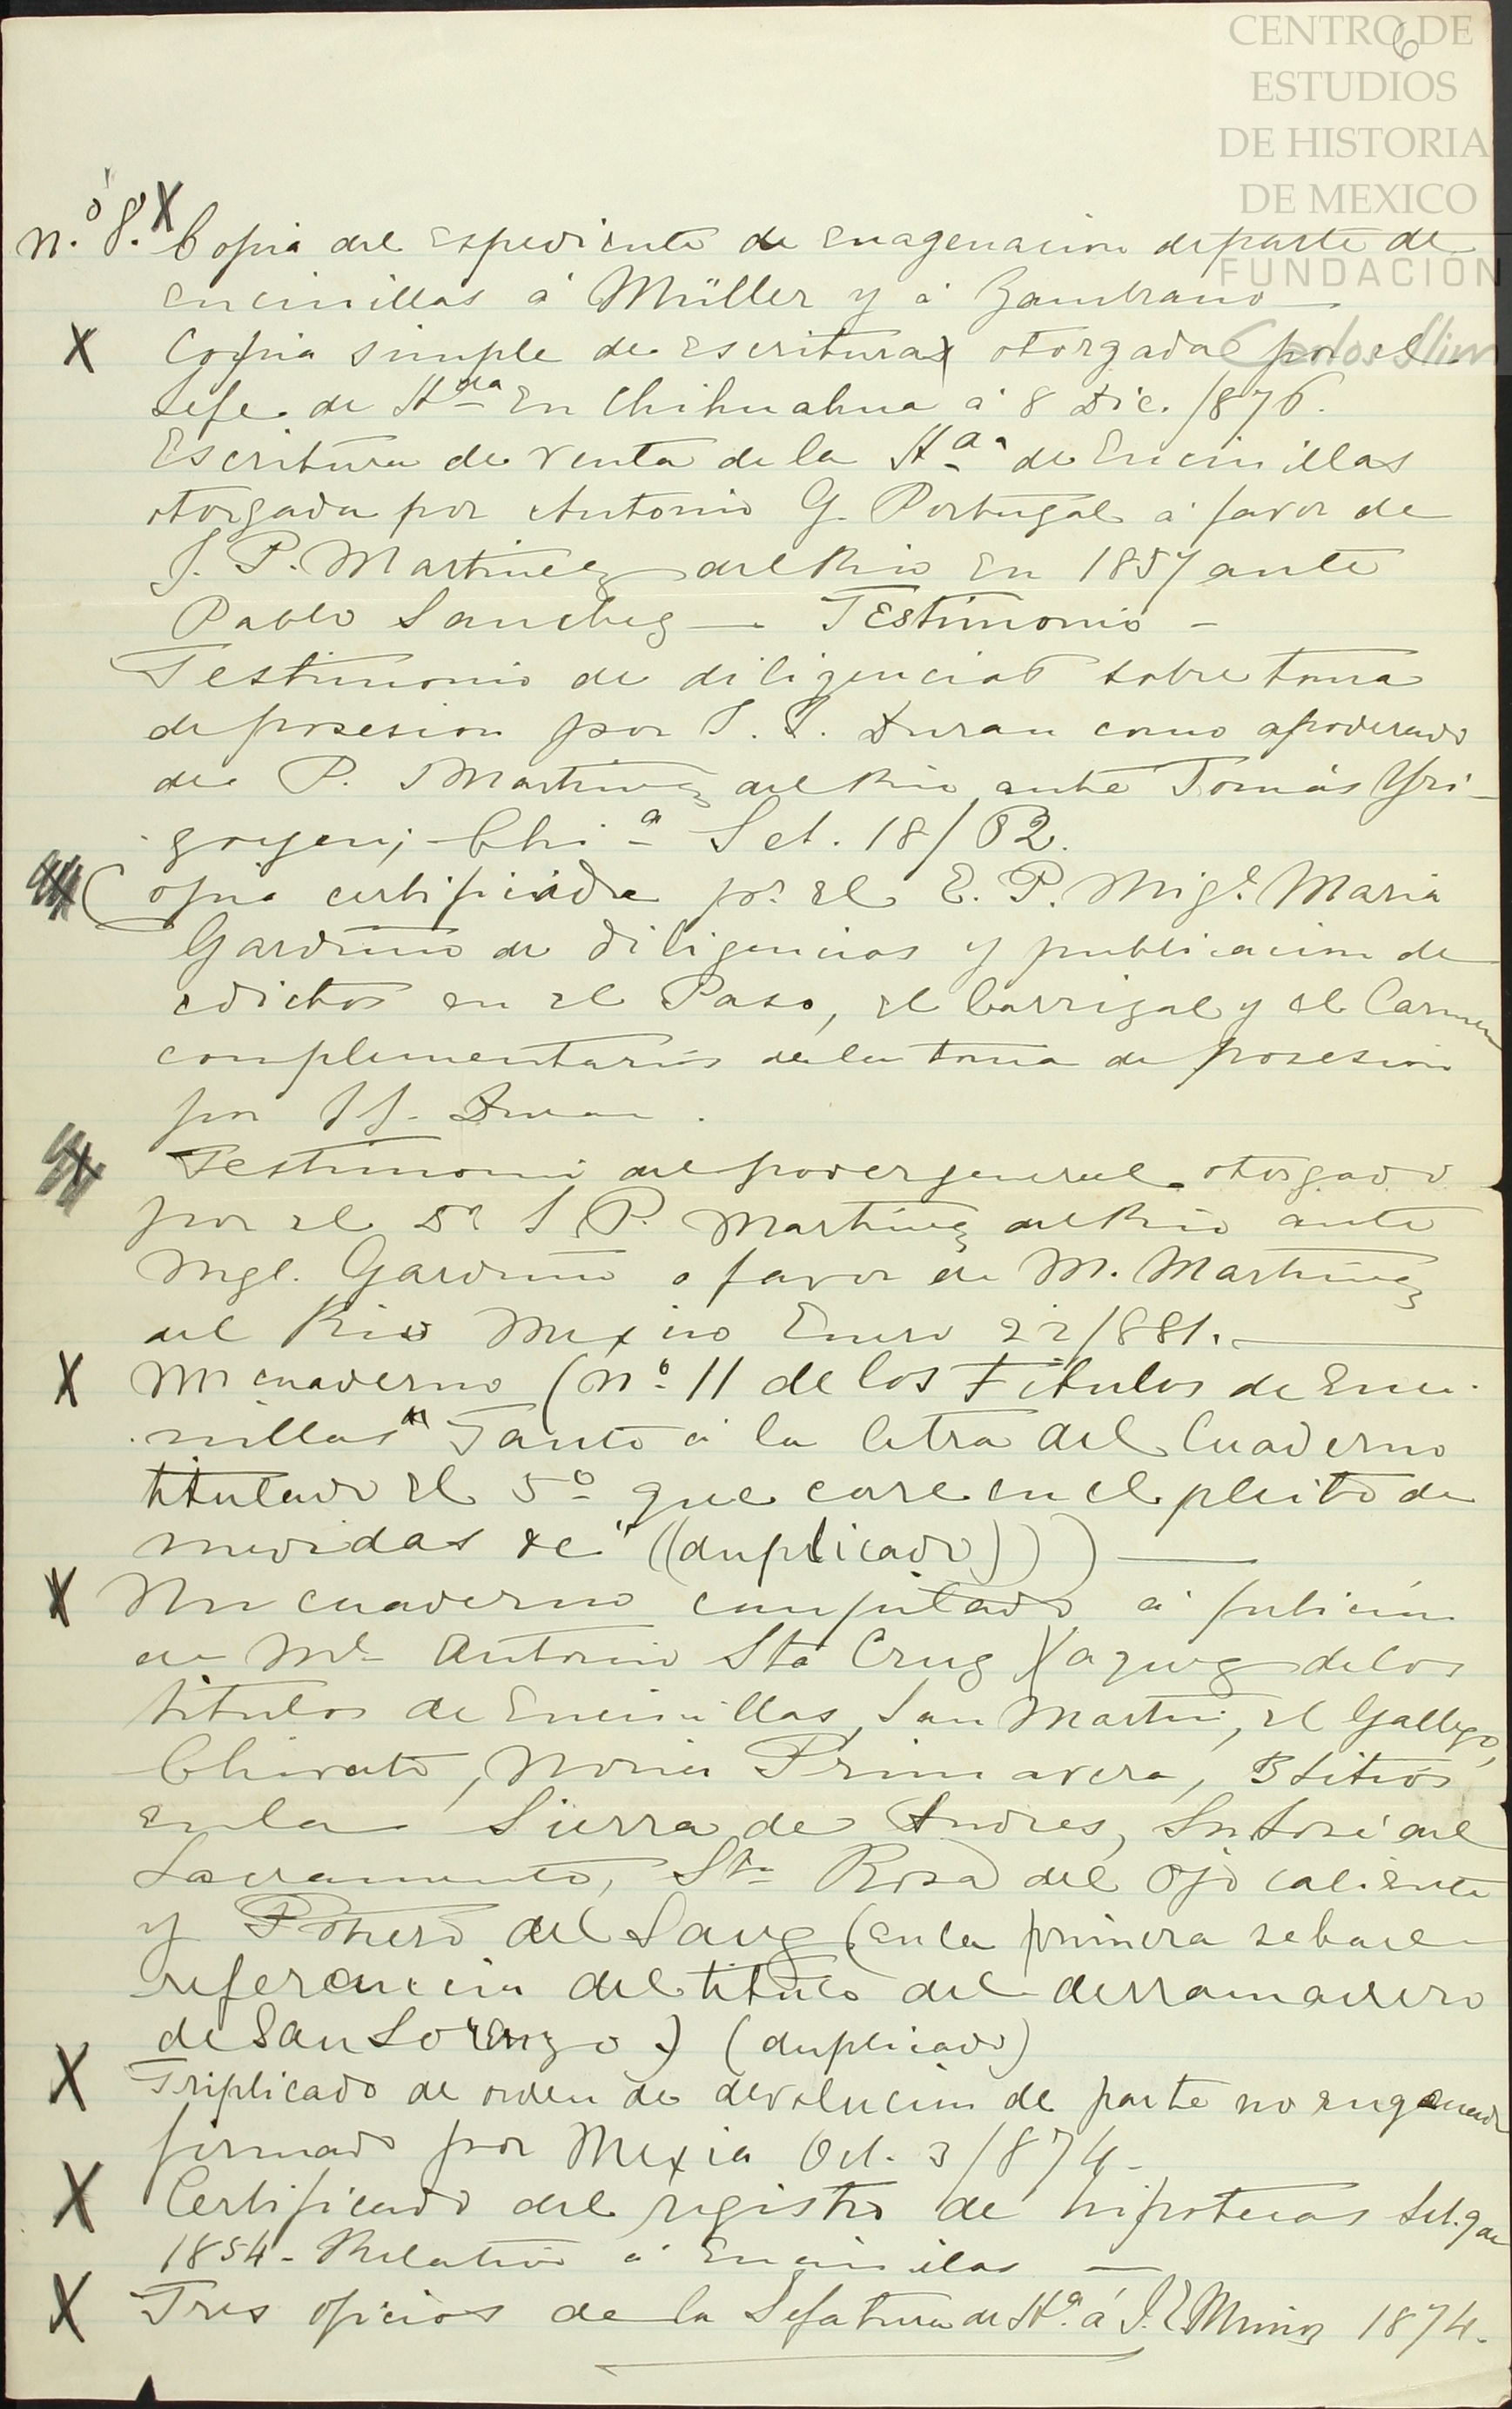 CENTRO DE
ESTUDIOS
DE HISTORIA
DE MEXICO
FUNDACIÓN
Carlos Slim
6
n.º 8. X Copia del espediente de enagenacion de parte de
encinillas á Müller y á Zambrano
X Copia simple de escritura otorgada por el
Jefe de Hda en Chihuahua á 8 Dic. 1876.
Escritura de venta de la Hda de Encinillas
otorgada por Antonio G. Portugal á favor de
J. P. Martinez del Rio en 1857 ante
Pablo Sanchez — Testimonio -
Testimonio de diligencias sobre toma
de posesion por J. J. Duran como apoderado
de P. Martinez del Rio ante Tomás Yri-
goyen; Chia Set. 18/82.
X Copia certificada pr. el E. P. Migl. Maria
Garduño de diligencias y publicacion de
edictos en el Paso, el Carrizal y el Carmen
complementarios de la toma de posesion
por J J. Duran.
X Testimonio del poder general otorgado
por el Sr J P. Martinez del Rio ante
Mgl. Garduño a favor de M. Martinez
del Rio Mexico Enero 22/881.
X Un cuaderno (nº. 11 de los Titulos de Enci-
nillas" Tanto á la letra del Cuaderno
titulado el 5º que corre en el pleito de
medidas &c" ((duplicado)))
X Un cuaderno compulsado á peticion
de Ml Antonio Sta Cruz de los
titulos de Encinillas, San Martin, el Gallego,
Chivato, Noria Primavera, 3 sitios
en la Sierra de Andres, Sn José del
Sacramento, Sta Rosa del Ojo caliente
y Potrero del Sauz (en la primera se hace
referencia del titulo del derramadero
de San Lorenzo.) (duplicado)
X Triplicado de orden de devolucion de parte no enagenada
firmado por Mexia Oct. 3/874-
X Certificado del registro de hipotecas
1854- Relativo á Encinillas —
X Tres oficios de la Jefatura de Ha. á J. Muñoz 1874.